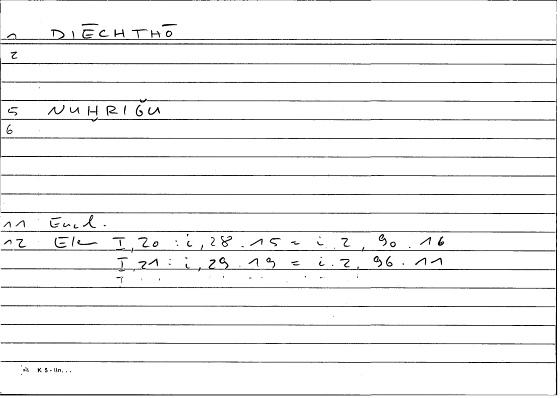 1 DIĒCHTHŌ
2
5 NUḪRIǦU
6
11 Eucl.
12 Ele I,20 : i,28.15 = i.2, 90.16
I,21 : i,29.19 = i.2, 96.11